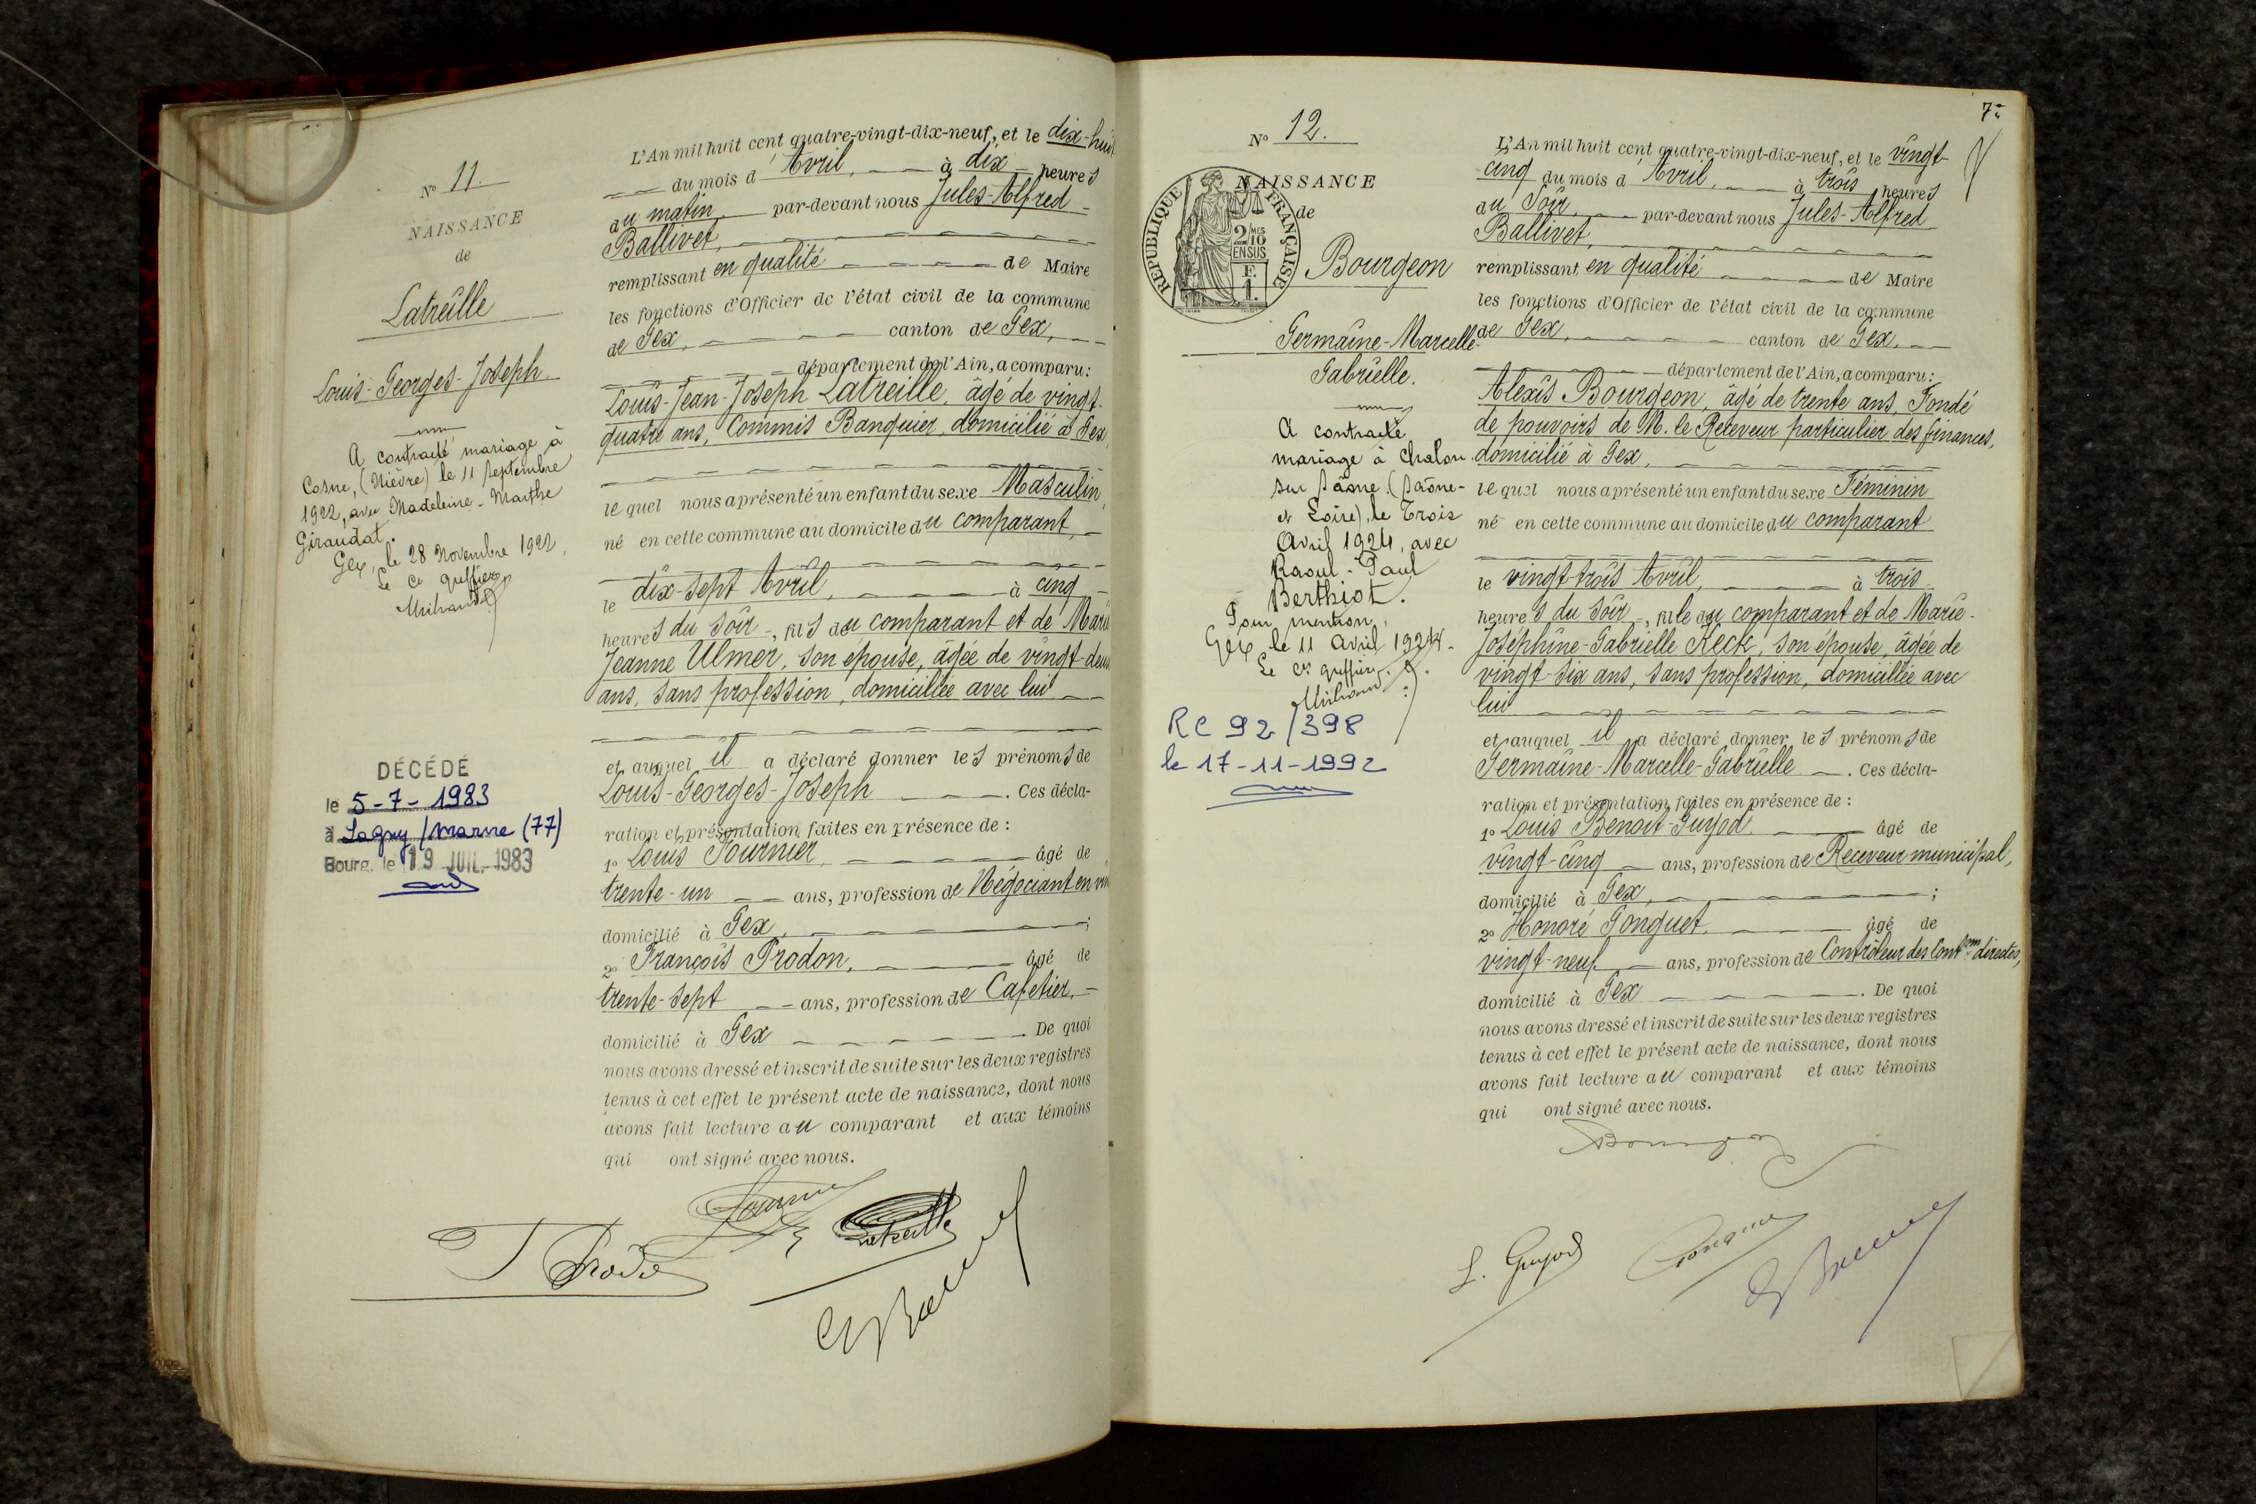 N° 11.
NAISSANCE
de
Latreille
Louis-Georges-Joseph
A contracté mariage à
Cosne, (Nièvre) le 11 septembre
1922, avec Madeleine-Marthe
Giraudat.
Gex, le 28 Novembre 1922,
Le Cs greffier
DÉCÉDÉ
le 5-7-1983
à Lagny/Marne (77)
Bourg, le 19 JUIL. 1983
L'An mil huit cent quatre-vingt-dix-neuf, et le dix-huit
du mois d'Avril, à dix heures
du matin, par-devant nous Jules-Alfred
Ballivet,
remplissant en qualité de Maire
les fonctions d'Officier de l'état civil de la commune
de Gex, canton de Gex,
département de l'Ain, a comparu:
Louis-Jean-Joseph Latreille, âgé de vingt-
quatre ans, Commis Banquier, domicilié à Gex,
le quel nous a présenté un enfant du sexe Masculin,
né en cette commune au domicile du comparant,
le dix-sept Avril, à cinq
heures du soir, fils du comparant et de Marie
Jeanne Ulmer, son épouse, âgée de vingt-deux
ans, sans profession, domiciliée avec lui
et auquel il a déclaré donner les prénoms de
Louis-Georges-Joseph. Ces décla-
ration et présentation faites en présence de :
1° Louis Fournier, âgé de
trente-un ans, profession de Négociant en vin
domicilié à Gex, ;
2° François Prodon, âgé de
trente-sept ans, profession de Cafetier,
domicilié à Gex. De quoi
nous avons dressé et inscrit de suite sur les deux registres
tenus à cet effet le présent acte de naissance, dont nous
avons fait lecture au comparant et aux témoins
qui ont signé avec nous.
Fournier
Latreille
7e
N° 12.
NAISSANCE
de
RÉPUBLIQUE FRANÇAISE
2/10 MES
EN SUS
F.
1.
Bourgeon
Germaine-Marcelle-
Gabrielle.
A contracté
mariage à Chalon-
sur Saône (Saône-
et Loire), le Trois
Avril 1924, avec
Raoul-Paul
Berthiot.
Pour mention,
Gex le 11 Avril 1924.
Le Cs greffier.
RC 92/398
le 17-11-1992
L'An mil huit cent quatre-vingt-dix-neuf, et le vingt-
cinq du mois d'Avril, à trois heures
du soir, par-devant nous Jules-Alfred
Ballivet,
remplissant en qualité de Maire
les fonctions d'Officier de l'état civil de la commune
de Gex, canton de Gex,
département de l'Ain, a comparu:
Alexis Bourgeon, âgé de trente ans, Fondé
de pouvoirs de M. le Receveur particulier des finances,
domicilié à Gex,
le quel nous a présenté un enfant du sexe Féminin
né en cette commune au domicile du comparant
le vingt-trois Avril, à trois
heures du soir, fille du comparant et de Marie-
Joséphine-Gabrielle Keck, son épouse, âgée de
vingt-six ans, sans profession, domiciliée avec
lui
et auquel il a déclaré donner les prénoms de
Germaine-Marcelle-Gabrielle. Ces décla-
ration et présentation faites en présence de :
1° Louis Benoit-Guyod, âgé de
vingt-cinq ans, profession de Receveur municipal,
domicilié à Gex, ;
2° Honoré Gonguet, âgé de
vingt-neuf ans, profession de Contrôleur des Contons directes,
domicilié à Gex. De quoi
nous avons dressé et inscrit de suite sur les deux registres
tenus à cet effet le présent acte de naissance, dont nous
avons fait lecture au comparant et aux témoins
qui ont signé avec nous.
Bourgeon
L. Guyod